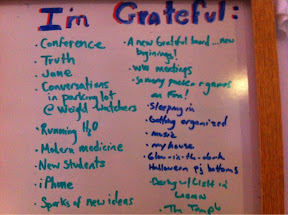 I'm Grateful:
• Conference
• Truth
• Jane
• Conversations
in parking lot
@ Weight Watchers
• Running H2O
• Modern medicine
• New Students
• iPhone
• Sparks of new ideas
• A new Grateful board... new
beginings!
• WW meetings
games
on
• Sleeping in
• Getting organized
• music
• my house
• Glow-in-the-dark
Halloween pj bottoms
• The Temple